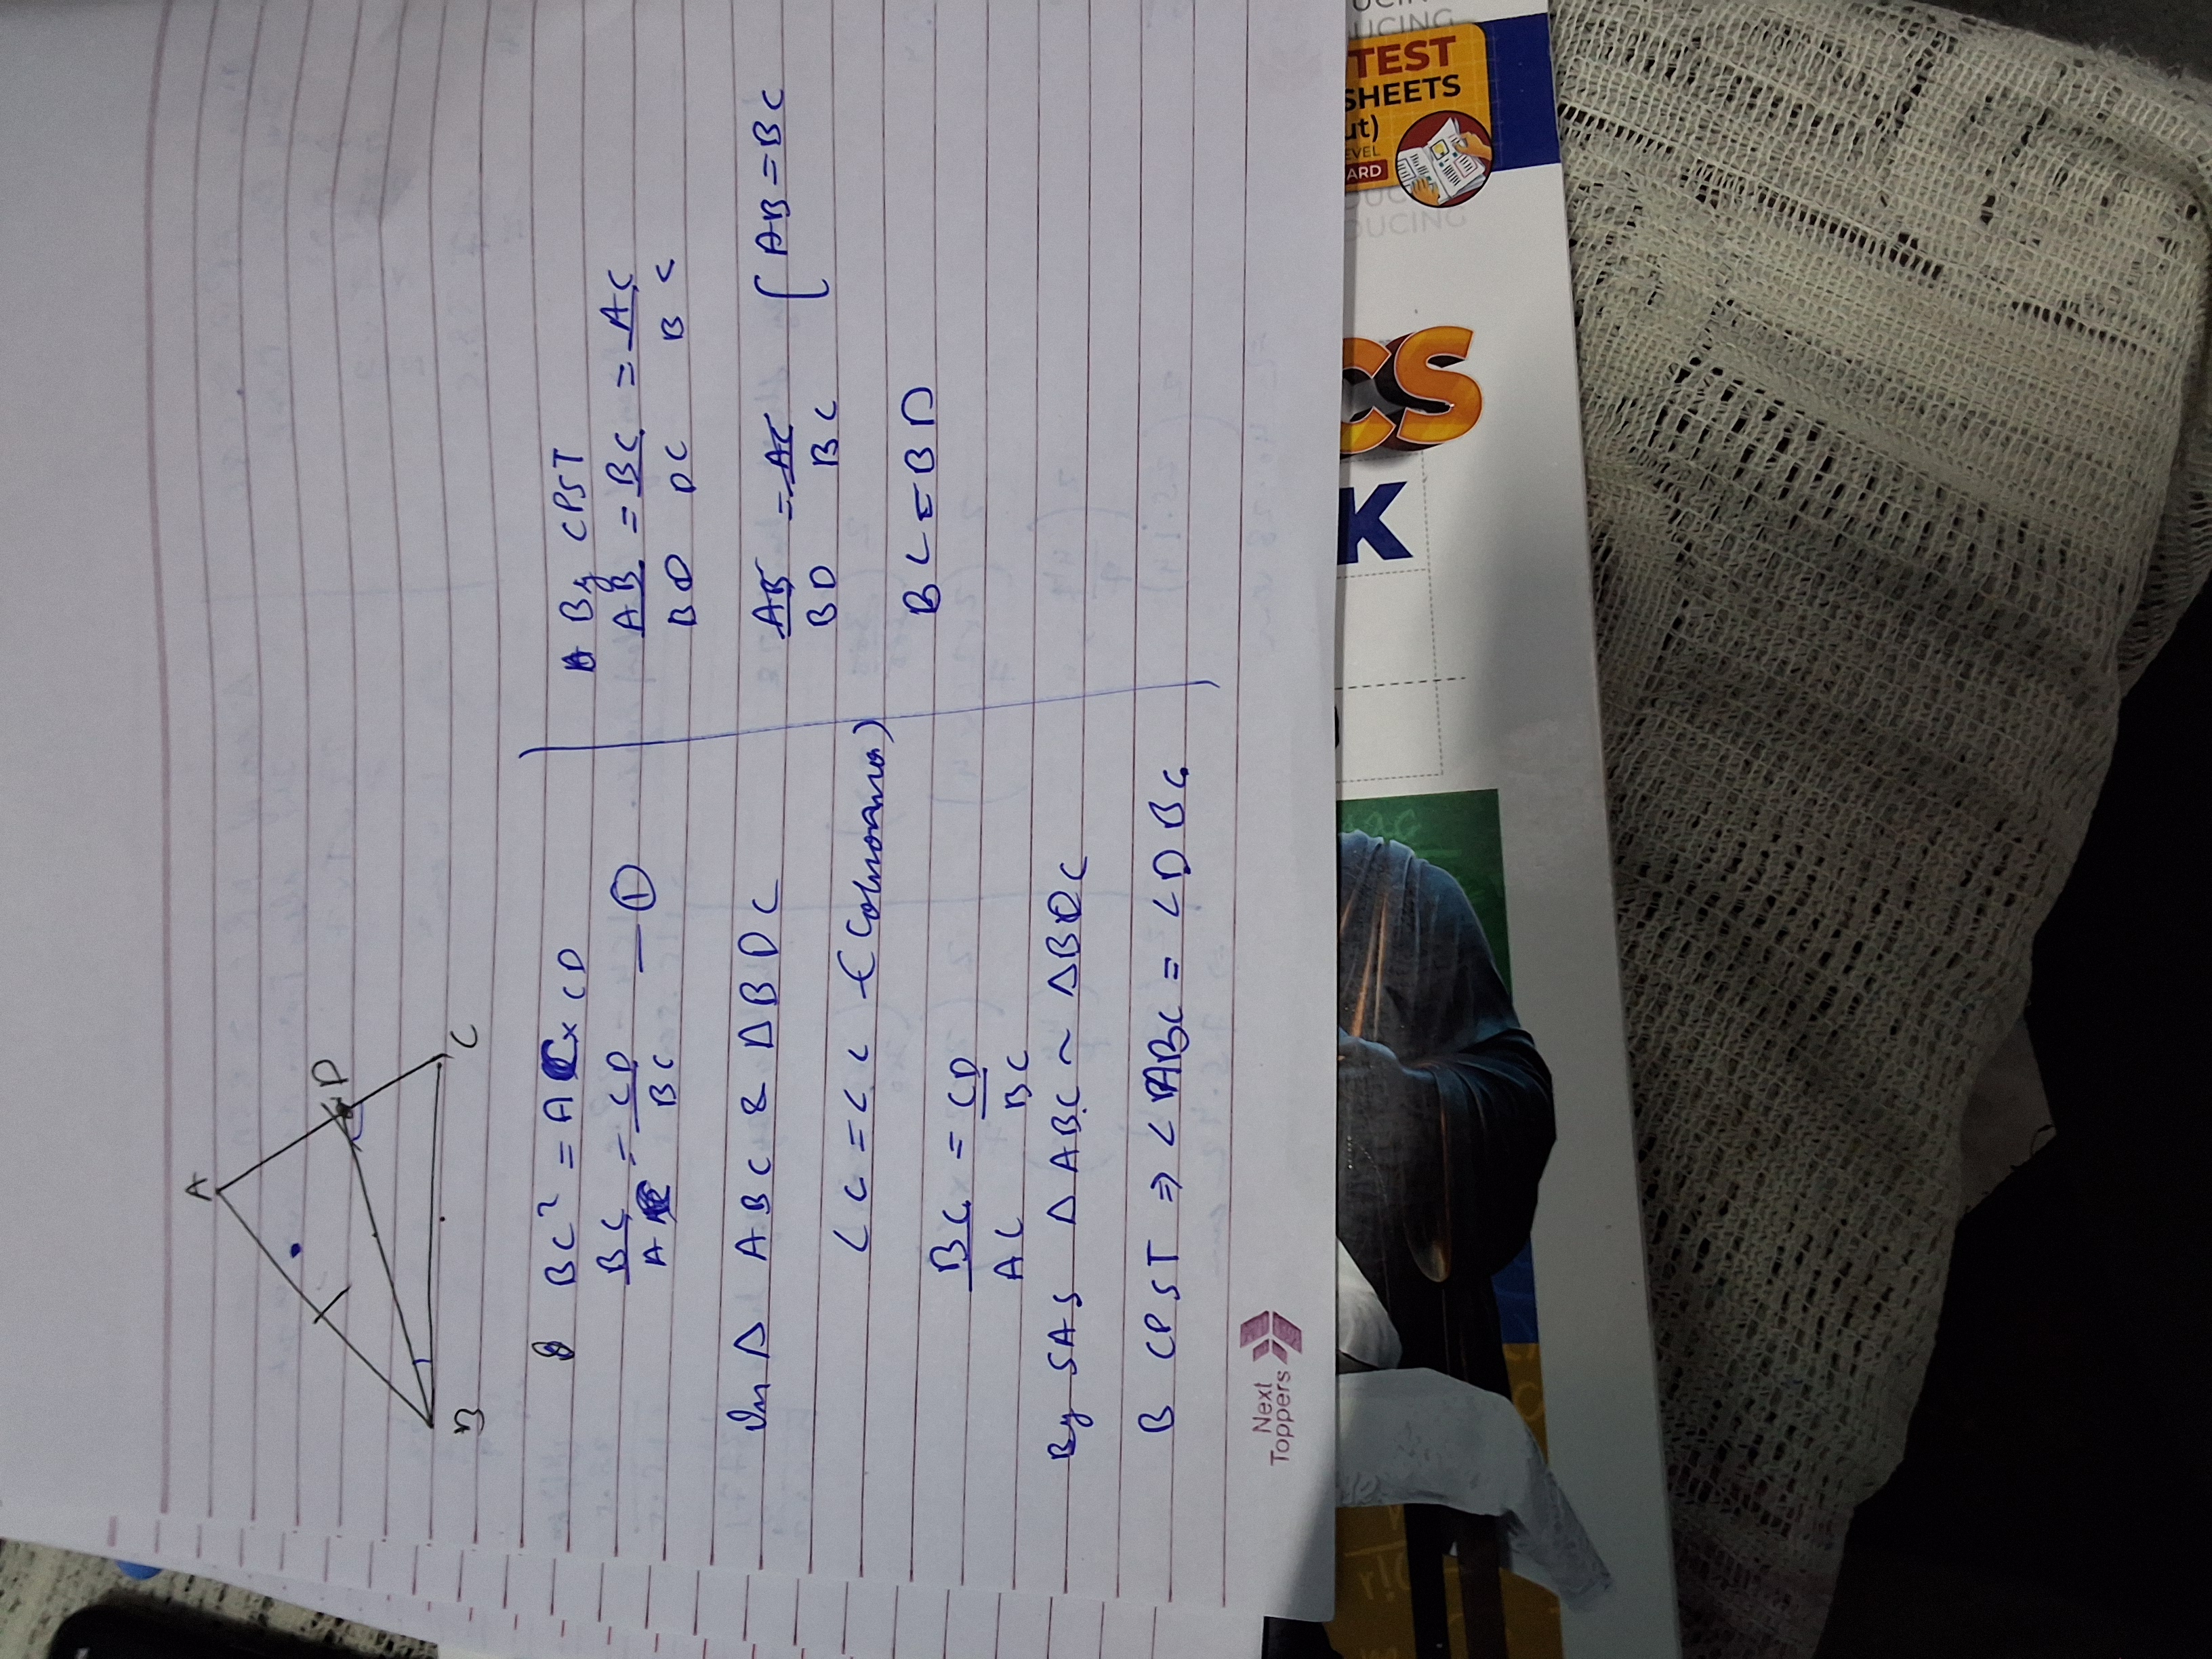 A
D
B
C
BC² = AC × CD
BC = CD — ①
AC BC
In Δ ABC & Δ BDC
∠C = ∠C
BC = CD
AC BC
By SAS Δ ABC ~ Δ BDC
B CPST ⇒ ∠ABC = ∠DBC
By CPST
AB = BC = AC
BD DC BC
AB = AC { AB = BC
BD BC
BC = BD
Next
Toppers
UCING
TEST
SHEETS
ut)
EVEL
ARD
DUCING
CS
K